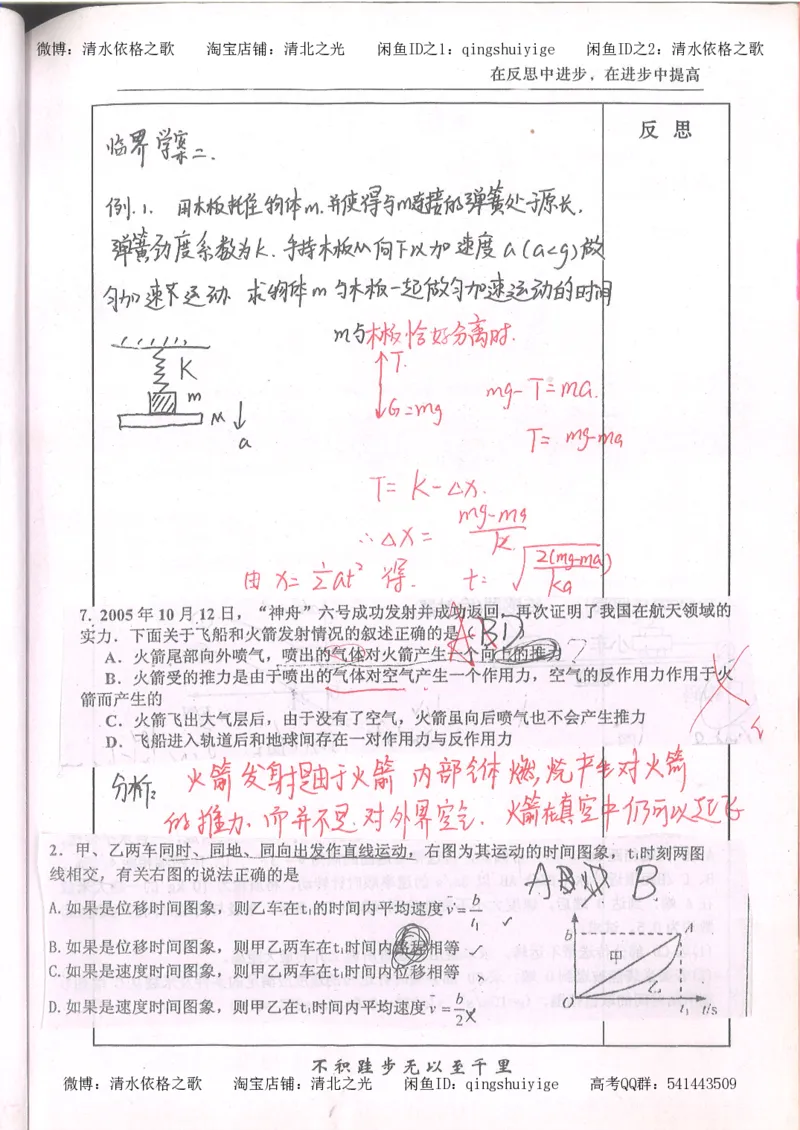 微博：清水依格之歌 淘宝店铺：清北之光 闲鱼ID之1：qingshuiyige 闲鱼ID之2：清水依格之歌
在反思中进步，在进步中提高
反 思
临界学案二.
例.1. 用木板托住物体m.并使得与m连接的弹簧处于原长,
弹簧劲度系数为K.手持木板从向下以加速度a(a<g)做
匀加速下运动.求物体m与木板一起做匀加速运动的时间
m与木板恰好分离时.
K
m
M
a
T.
G=mg
mg-T=ma.
T=mg-ma
T=K-△x.
∴△x=\frac{mg-ma}{k}
由x=\frac{1}{2}at² 得. t=\sqrt{\frac{2(mg-ma)}{ka}}
7．2005年10月12日，“神舟”六号成功发射并成功返回．再次证明了我国在航天领域的
实力．下面关于飞船和火箭发射情况的叙述正确的是（BD）
A．火箭尾部向外喷气，喷出的气体对火箭产生一个向上的推力
B．火箭受的推力是由于喷出的气体对空气产生一个作用力，空气的反作用力作用于火
箭而产生的
C．火箭飞出大气层后，由于没有了空气，火箭虽向后喷气也不会产生推力
D．飞船进入轨道后和地球间存在一对作用力与反作用力
分析：火箭发射是由于火箭 内部气体燃烧产生对火箭
的推力.而并不是对外界空气.火箭在真空中仍可以起飞
2．甲、乙两车同时、同地、同向出发作直线运动，右图为其运动的时间图象，t₁时刻两图
线相交，有关右图的说法正确的是
ABD B
A.如果是位移时间图象，则乙车在t₁的时间内平均速度v̄=\frac{b}{t₁}
B.如果是位移时间图象，则甲乙两车在t₁时间内相等
C.如果是速度时间图象，则甲乙两车在t₁时间内位移相等
D.如果是速度时间图象，则甲乙在t₁时间内平均速度v̄=\frac{b}{2}
b
A
甲
乙
O
t₁ t/s
不积跬步无以至千里
微博：清水依格之歌 淘宝店铺：清北之光 闲鱼ID：qingshuiyige 高考QQ群：541443509